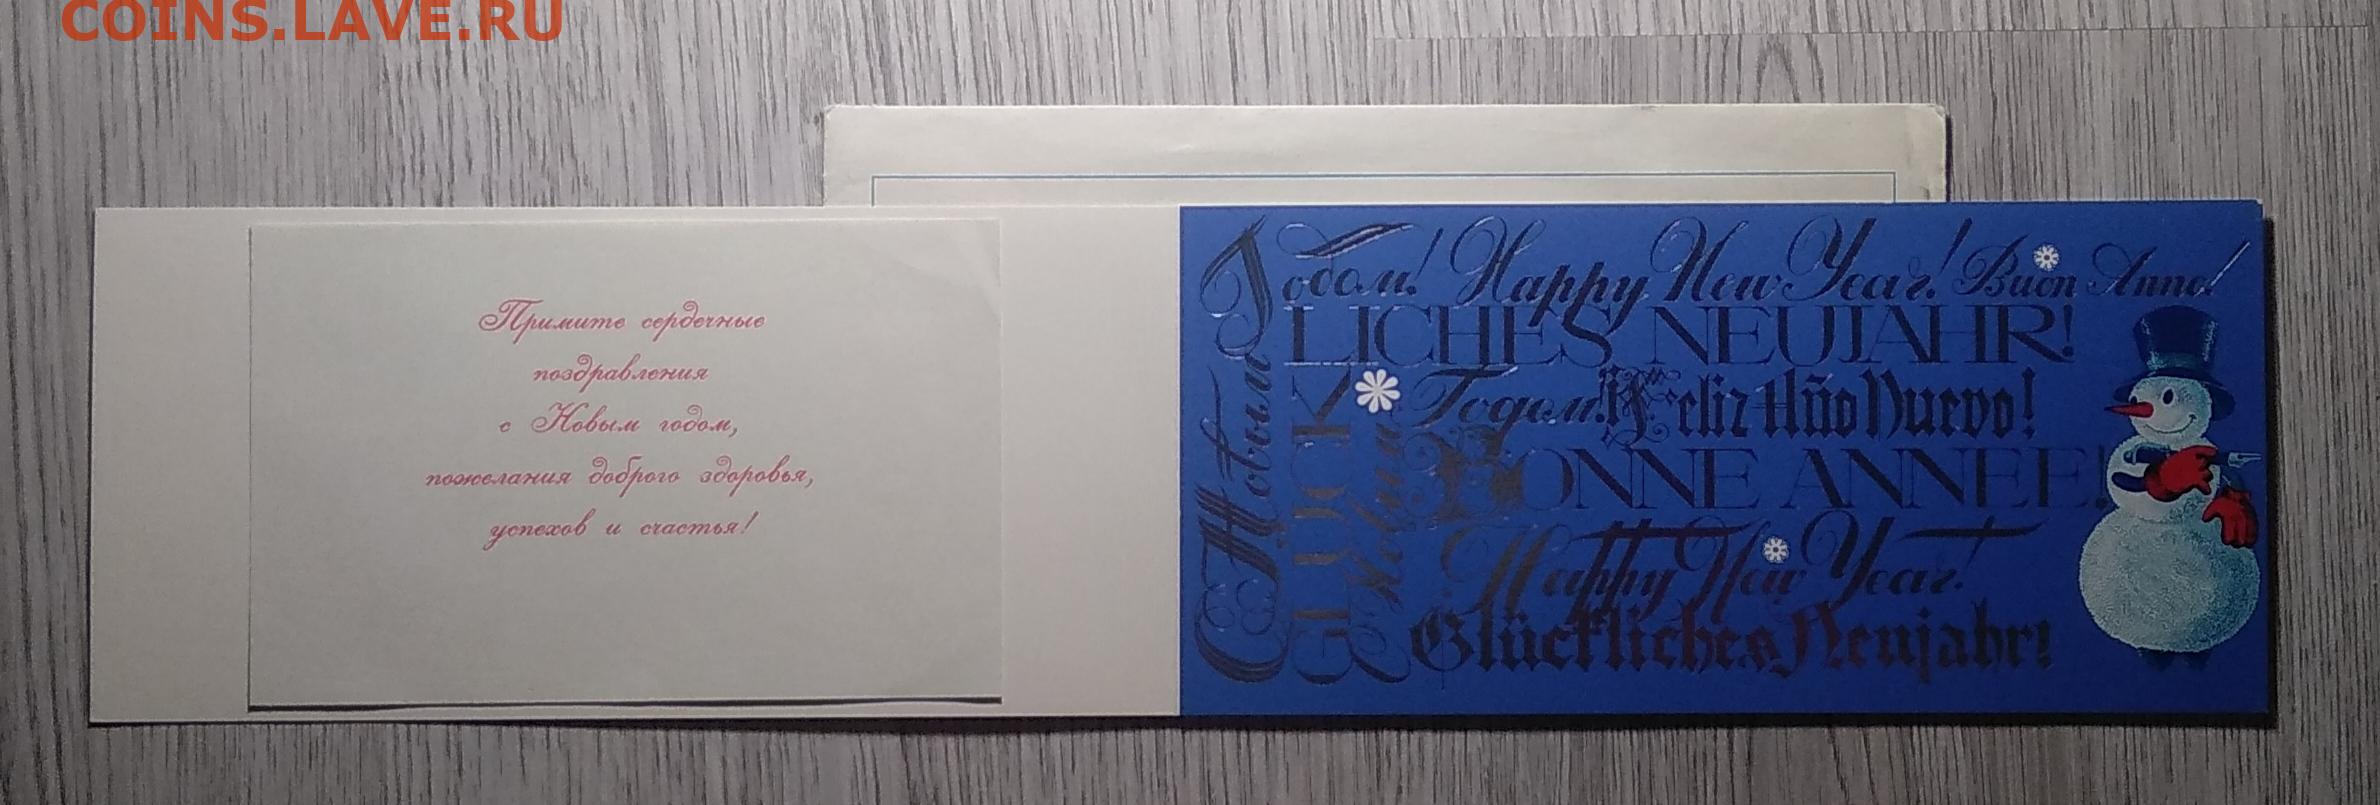 COINS.LAVE.RU
Примите сердечные
поздравления
с Новым годом,
пожелания доброго здоровья,
успехов и счастья!
С Новым Годом! Happy New Year! Buon Anno!
GLÜCKLICHES NEUJAHR!
С Новым Годом! Feliz Año Nuevo!
BONNE ANNEE!
Happy New Year!
Glückliches Neujahr!